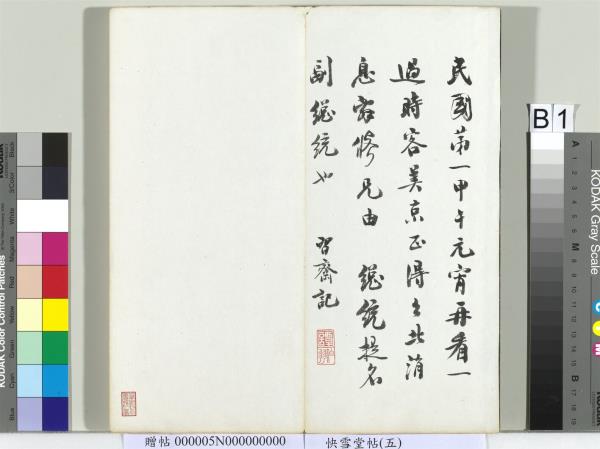 民國第一甲午元宵再看一
過時客美京正得台北消
息辭修兄由 總統提名
副總統也 習齋記
B 1
贈帖 000005N000000000 快雪堂帖(五)
KODAK Color Control Patches
Blue Cyan Green Yellow Red Magenta White 3/Color Black
KODAK Gray Scale
C Y M
A 1 2 3 4 5 6 M 8 9 10 11 12 13 14 15 B 17 18 19